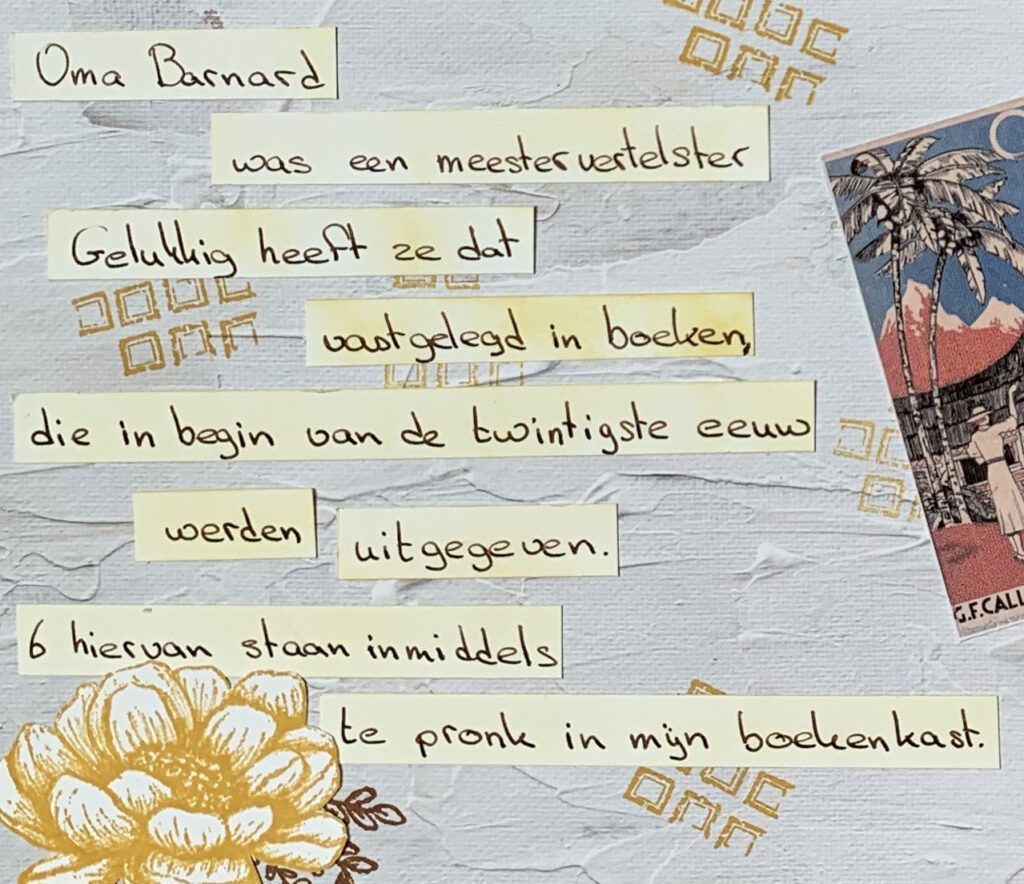 Oma Barnard
was een meestervertelster
Gelukkig heeft ze dat
vastgelegd in boeken,
die in begin van de twintigste eeuw
werden uitgegeven.
6 hiervan staan inmiddels
te pronk in mijn boekenkast.
G.F. CALL